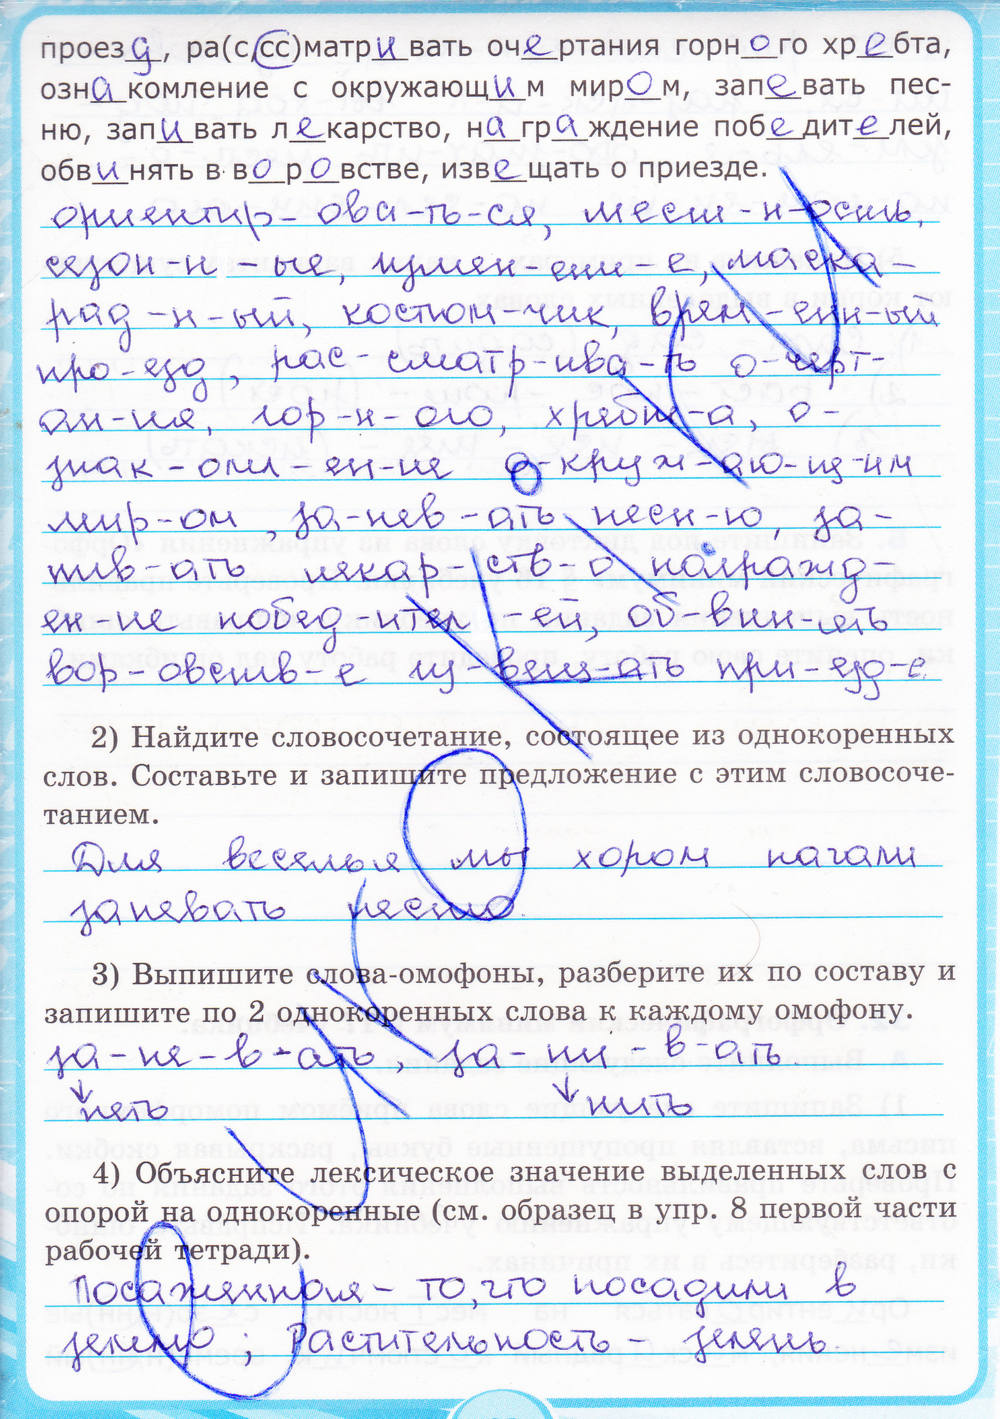 проезд, ра(с,сс)матривать очертания горного хребта,
ознакомление с окружающим миром, запевать пес-
ню, запивать лекарство, награждение победителей,
обвинять в воровстве, извещать о приезде.
ориентир-ова-ть-ся, мест-н-ость,
сезон-н-ые, измен-ени-е, маска-
рад-н-ый, костюм-чик, врем-енн-ый
про-езд, рас-сматр-ива-ть о-черт-
ан-ия, гор-н-ого, хребт-а, о-
знак-омл-ен-ие о-круж-аю-щ-им
мир-ом, за-пев-ать песн-ю, за-
пив-ать лекар-ств-о награжд
ен-ие побед ител-ей, об-вин-ять
вор-овств-е из-вещ-ать при-езд-е.
2) Найдите словосочетание, состоящее из однокоренных
слов. Составьте и запишите предложение с этим словосоче-
танием.
Для веселья мы хором начали
запевать песню.
3) Выпишите слова-омофоны, разберите их по составу и
запишите по 2 однокоренных слова к каждому омофону.
за-пе-в-ать, за-пи-в-ать
петь пить
4) Объясните лексическое значение выделенных слов с
опорой на однокоренные (см. образец в упр. 8 первой части
рабочей тетради).
Посаженная - то, что посадили в
землю; Растительность - зелень.